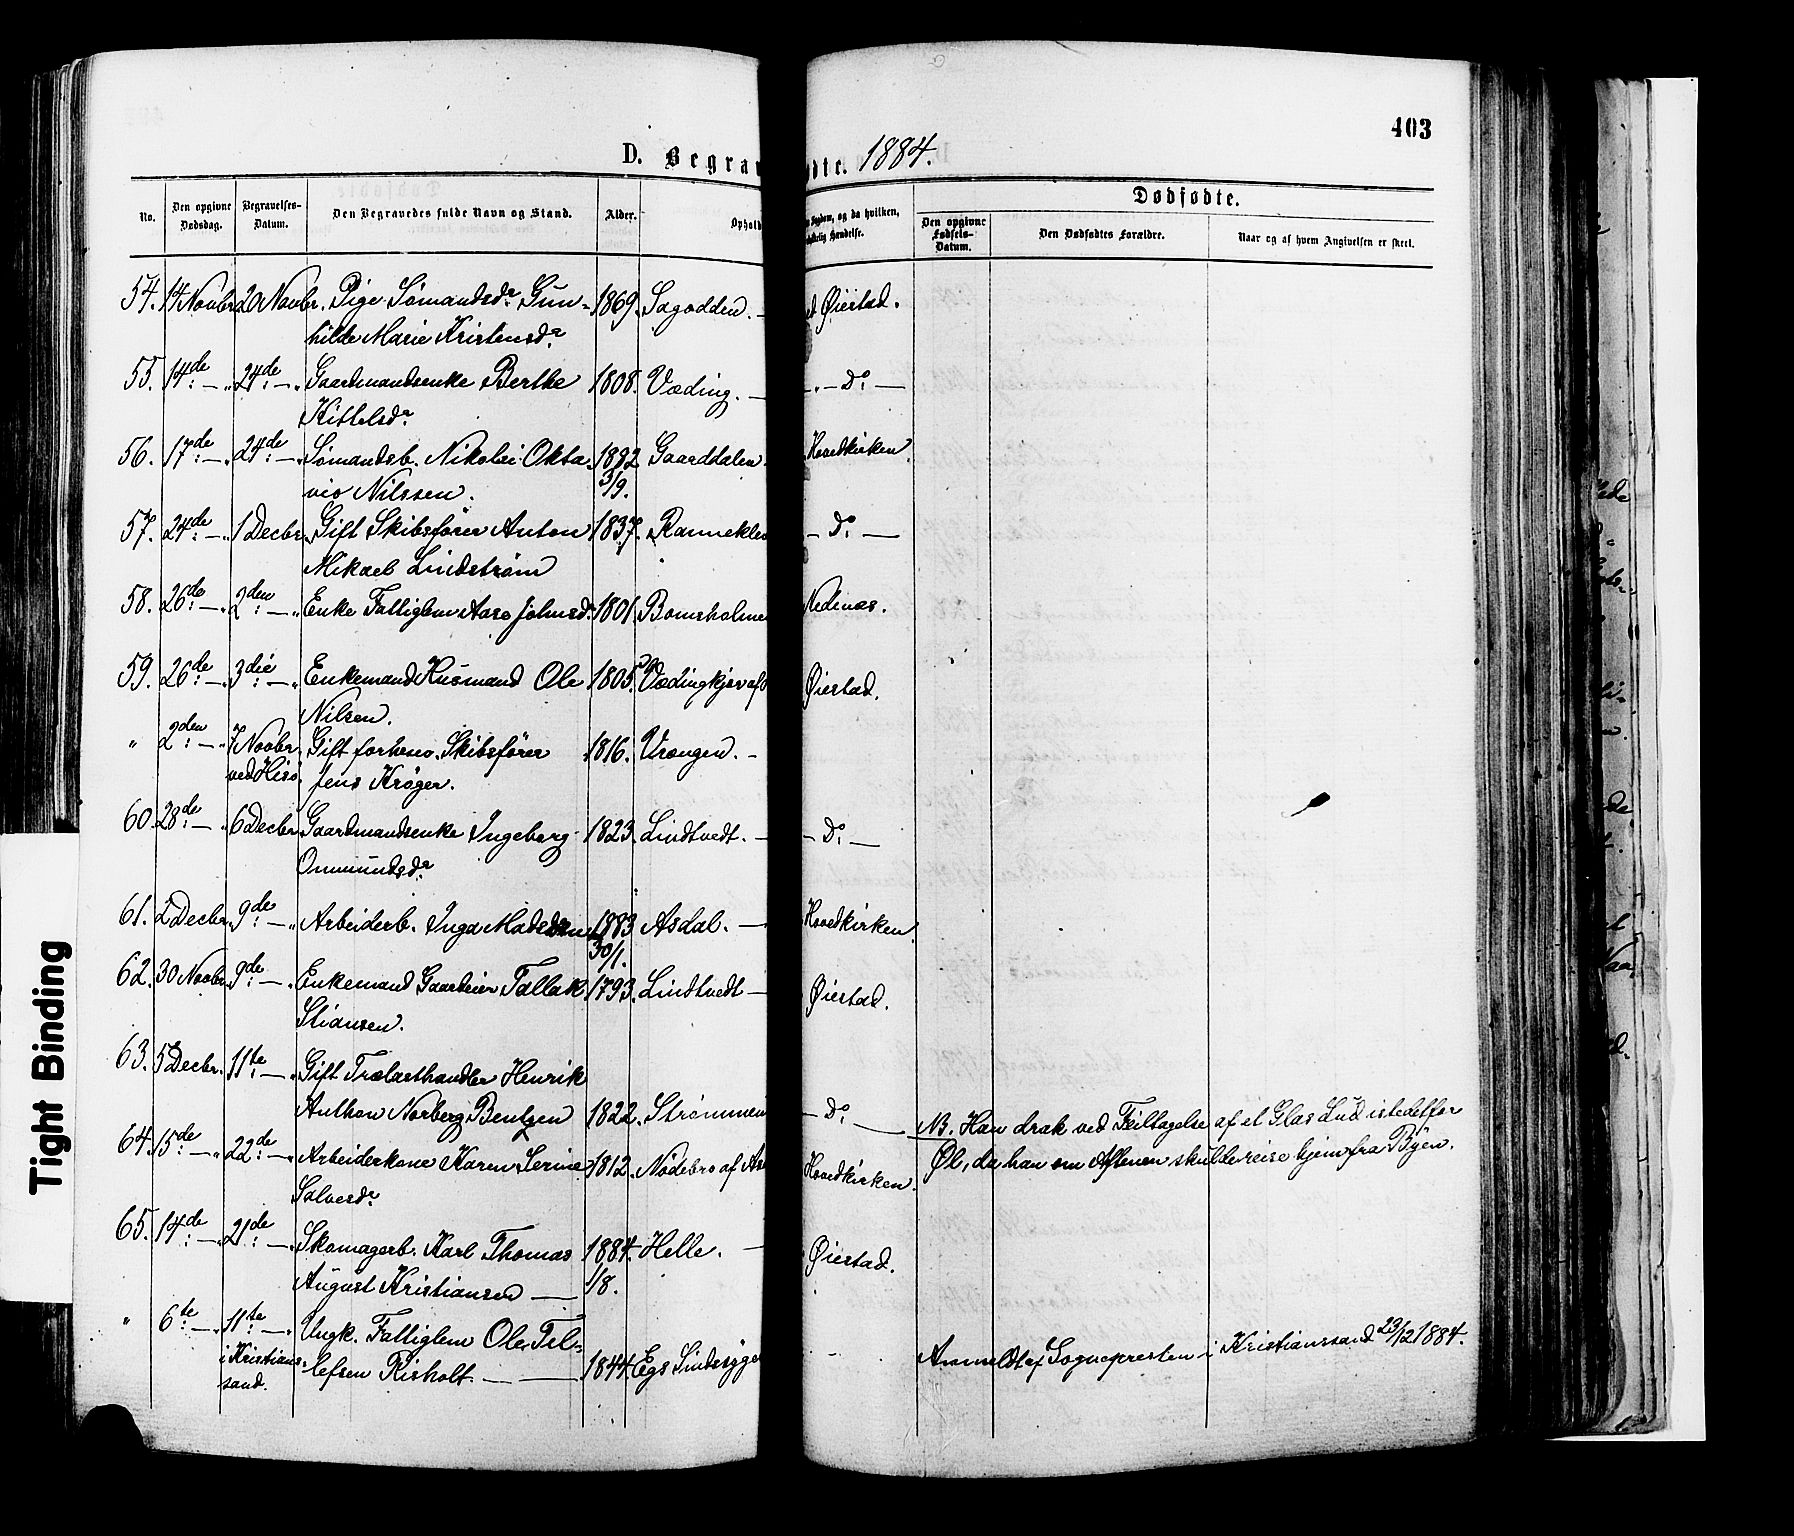 403
D. Begrav
dte. 1884.
Dødfødte.
No. Den opgivne Dødsdag. Begravelses-Datum. Den Begravedes fulde Navn og Stand. Alder. Ophold
Sygdom, og da hvilken,
Den opgivne Fødsels-Datum. Den Dødfødtes Forældre. Naar og af hvem Angivelsen er skeet.
54. 14 Novbr. 20 Novbr. Pige Sømandsdr. Gun- 1869. Sagodden. — Øiestad.
hilde Marie Kristensdr.
55. 14de — " 24de — " Gaardmandsenke Berthe 1808. Væding. — " — Do —
Kittelsdr.
56. 17de — " 24de — " Sømandsb. Nikolai Okta- 1882 Gaarddalen Hovedkirken.
vio Nilssen. 3/9.
57. 24de — " 1 Decbr. Gift Skibsfører Anton 1837. Rannekle — Do —
Mikael Lindstrøm
58. 26de — " 2den — " Enke Fattiglem Aase Johnsd. 1801. Bomsholme Nedenæs.
59. 26de — " 3die — " Enkemand Husmand Ole 1805. Vædingkjær af Øiestad.
Nilsen.
" 2den — " 7 Novbr. Gift forhenv. Skibsfører 1816. Vrengen. —
ved Hisø Jens Krøger.
60. 28de — " 6 Decbr. Gaardmandsenke Ingeborg 1823. Lindtvedt. — — Do —
Ommundsdr.
61. 2 Decbr. 9de — " Arbeiderb. Inga Madsen 1883 Asdal. — Hovedkirken.
30/1.
62. 30 Novbr. 9de — " Enkemand Gaardeier Tallak 1793. Lindtvedt — Øiestad.
Stiansen.
63. 5 Decbr. 11te — " Gift Trælasthandler Henrik
Anthon Norberg Bentzen 1822. Strømmen — Do — NB. Han drak ved Feiltagelse af et Glas Lud istedetfor
64. 15de — " 22de — " Arbeiderkone Karen Serine 1812. Nødebro af As Hovedkirken. Øl, da han om Aftenen skulde reise hjem fra Byen.
Salvesdr.
65. 14de — " 21de — " Skomagerb. Karl Thomas 1884. Helle. — Øiestad.
August Kristiansen — 1/8.
" 6te — " 11te — " Ungk. Fattiglem Ole Tel-
i Kristians- lefsen Risholt. — — 1844. Egs Sindssyge - Anmeldt af Sognepresten i Kristianssand 23/12 1884.
sand.
Tight Binding